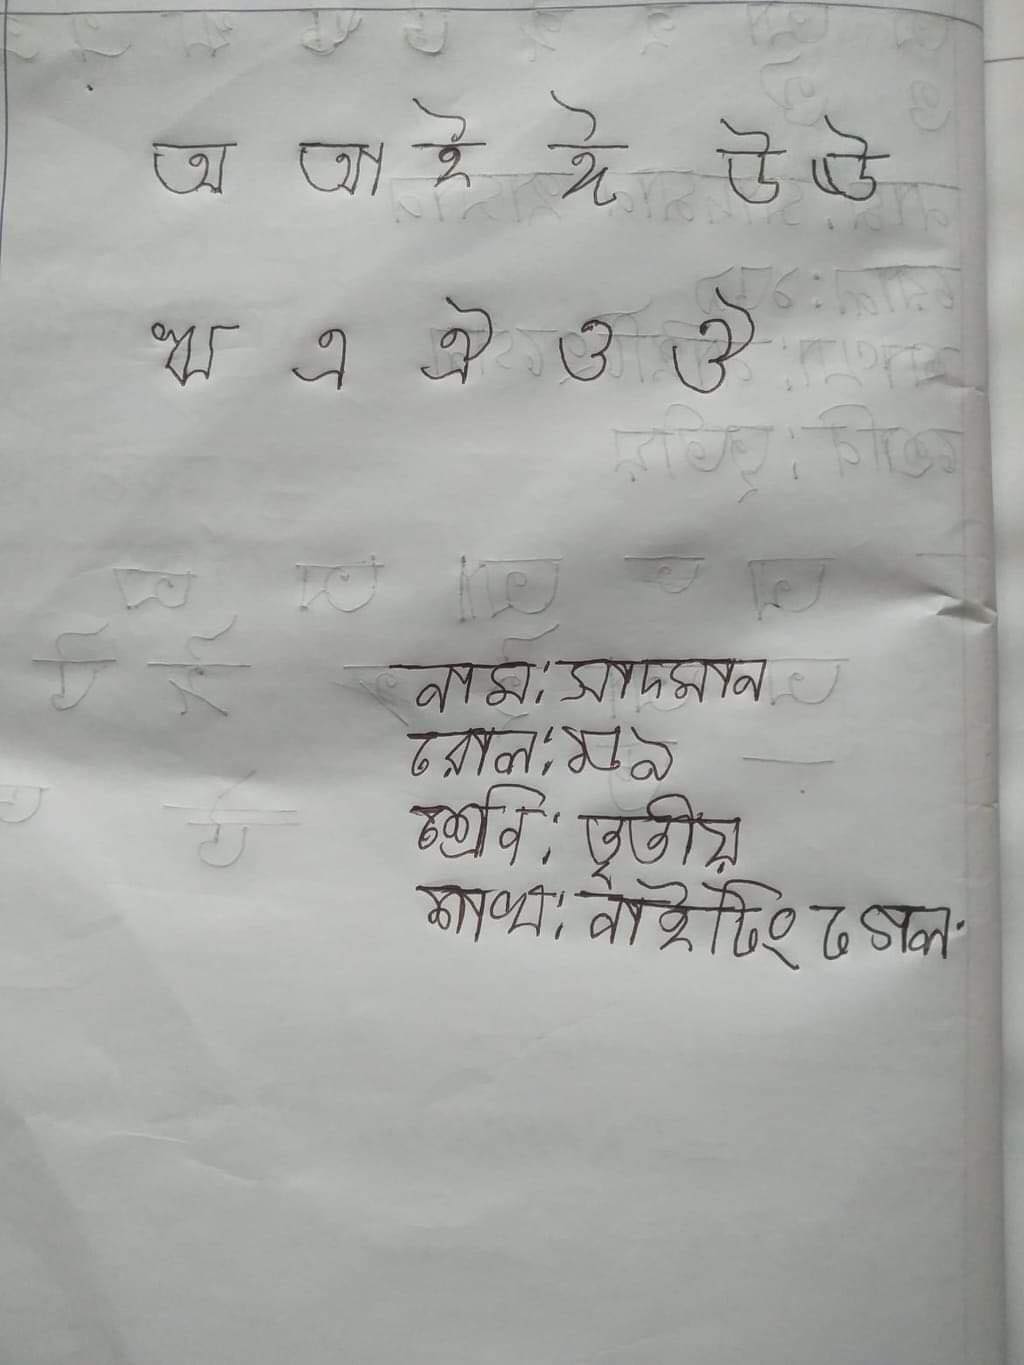 অ আ ই ঈ উ ঊ
ঋ এ ঐ ও ঔ
নাম: সাদমান
রোল:
শ্রেনি: তৃতীয়
শাখা: নাইটিংগেল